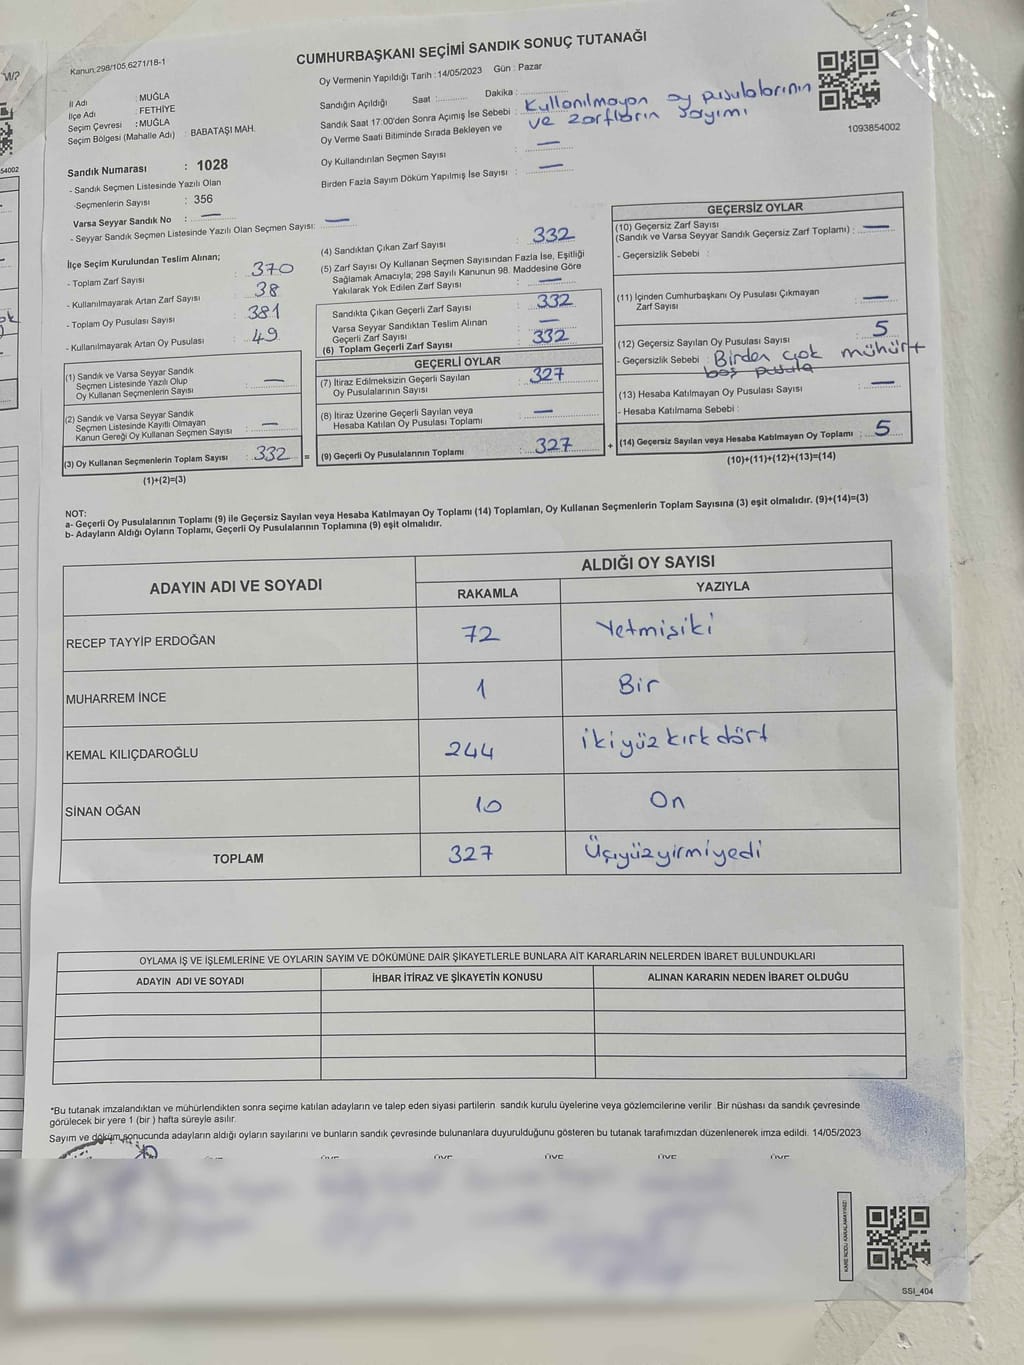 CUMHURBAŞKANI SEÇİMİ SANDIK SONUÇ TUTANAĞI
Kanun,298/105,6271/18-1
Oy Vermenin Yapıldığı Tarih :14/05/2023 Gün : Pazar
İl Adı : MUĞLA
İlçe Adı : FETHİYE
Seçim Çevresi : MUĞLA
Seçim Bölgesi (Mahalle Adı) : BABATAŞI MAH.
Sandığın Açıldığı Saat : Dakika :
Sandık Saat 17:00'den Sonra Açımış İse Sebebi : Kullanılmayan oy pusulalarının
ve zarfların sayımı
Oy Verme Saati Bitiminde Sırada Bekleyen ve
Oy Kullandırılan Seçmen Sayısı : —
Birden Fazla Sayım Döküm Yapılmış İse Sayısı : —
1093854002
Sandık Numarası : 1028
- Sandık Seçmen Listesinde Yazılı Olan
-Seçmenlerin Sayısı : 356
Varsa Seyyar Sandık No : —
- Seyyar Sandık Seçmen Listesinde Yazılı Olan Seçmen Sayısı: —
İlçe Seçim Kurulundan Teslim Alınan;
- Toplam Zarf Sayısı : 370
- Kullanılmayarak Artan Zarf Sayısı : 38
- Toplam Oy Pusulası Sayısı : 381
- Kullanılmayarak Artan Oy Pusulası : 49
(1) Sandık ve Varsa Seyyar Sandık
Seçmen Listesinde Yazılı Olup
Oy Kullanan Seçmenlerin Sayısı : —
(2) Sandık ve Varsa Seyyar Sandık
Seçmen Listesinde Kayıtlı Olmayan
Kanun Gereği Oy Kullanan Seçmen Sayısı : —
(3) Oy Kullanan Seçmenlerin Toplam Sayısı : 332
(1)+(2)=(3)
=
(4) Sandıktan Çıkan Zarf Sayısı : 332
(5) Zarf Sayısı Oy Kullanan Seçmen Sayısından Fazla İse, Eşitliği
Sağlamak Amacıyla; 298 Sayılı Kanunun 98. Maddesine Göre
Yakılarak Yok Edilen Zarf Sayısı : —
Sandıkta Çıkan Geçerli Zarf Sayısı : 332
Varsa Seyyar Sandıktan Teslim Alınan
Geçerli Zarf Sayısı : —
(6) Toplam Geçerli Zarf Sayısı : 332
GEÇERLİ OYLAR
(7) İtiraz Edilmeksizin Geçerli Sayılan
Oy Pusulalarının Sayısı : 327
(8) İtiraz Üzerine Geçerli Sayılan veya
Hesaba Katılan Oy Pusulası Toplamı : —
(9) Geçerli Oy Pusulalarının Toplamı : 327
+
GEÇERSİZ OYLAR
(10) Geçersiz Zarf Sayısı
(Sandık ve Varsa Seyyar Sandık Geçersiz Zarf Toplamı) : —
- Geçersizlik Sebebi :
(11) İçinden Cumhurbaşkanı Oy Pusulası Çıkmayan
Zarf Sayısı : —
(12) Geçersiz Sayılan Oy Pusulası Sayısı : 5
- Geçersizlik Sebebi : Birden çok mühürt
boş pusula
(13) Hesaba Katılmayan Oy Pusulası Sayısı : —
- Hesaba Katılmama Sebebi :
(14) Geçersiz Sayılan veya Hesaba Katılmayan Oy Toplamı : 5
(10)+(11)+(12)+(13)=(14)
NOT:
a- Geçerli Oy Pusulalarının Toplamı (9) ile Geçersiz Sayılan veya Hesaba Katılmayan Oy Toplamı (14) Toplamları, Oy Kullanan Seçmenlerin Toplam Sayısına (3) eşit olmalıdır. (9)+(14)=(3)
b- Adayların Aldığı Oyların Toplamı, Geçerli Oy Pusulalarının Toplamına (9) eşit olmalıdır.
ADAYIN ADI VE SOYADI
ALDIĞI OY SAYISI
RAKAMLA YAZIYLA
RECEP TAYYİP ERDOĞAN 72 Yetmişiki
MUHARREM İNCE 1 Bir
KEMAL KILIÇDAROĞLU 244 ikiyüz kırk dört
SİNAN OĞAN 10 On
TOPLAM 327 Üçyüzyirmiyedi
OYLAMA İŞ VE İŞLEMLERİNE VE OYLARIN SAYIM VE DÖKÜMÜNE DAİR ŞİKAYETLERLE BUNLARA AİT KARARLARIN NELERDEN İBARET BULUNDUKLARI
ADAYIN ADI VE SOYADI İHBAR İTİRAZ VE ŞİKAYETİN KONUSU ALINAN KARARIN NEDEN İBARET OLDUĞU
*Bu tutanak imzalandıktan ve mühürlendikten sonra seçime katılan adayların ve talep eden siyasi partilerin sandık kurulu üyelerine veya gözlemcilerine verilir .Bir nüshası da sandık çevresinde
görülecek bir yere 1 (bir ) hafta süreyle asılır.
Sayım ve döküm sonucunda adayların aldığı oyların sayılarını ve bunların sandık çevresinde bulunanlara duyurulduğunu gösteren bu tutanak tarafımızdan düzenlenerek imza edildi. 14/05/2023
ÜYE ÜYE ÜYE ÜYE ÜYE
KARE KODU KARALAMAYINIZ!
SSI_404